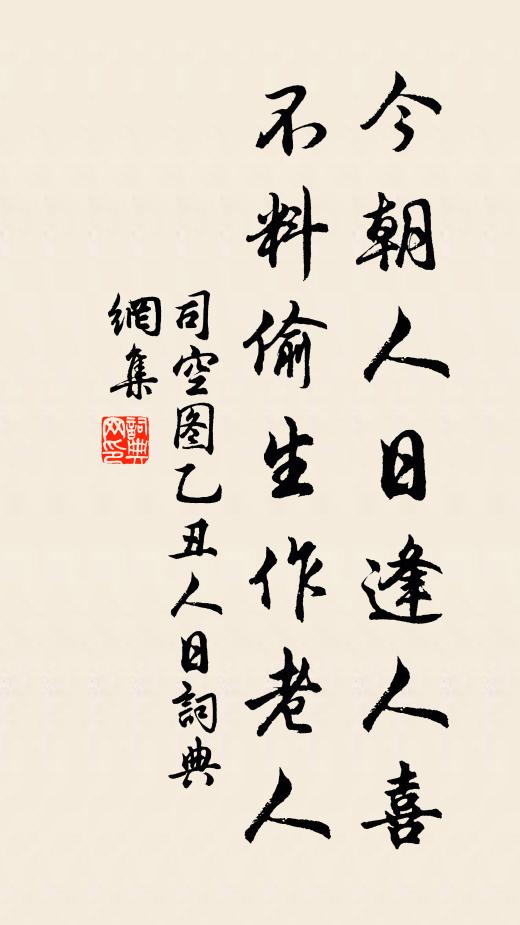 今朝人日逢人喜
不料偷生作老人
司空图乙丑人日詞典
網集
詞典
网印